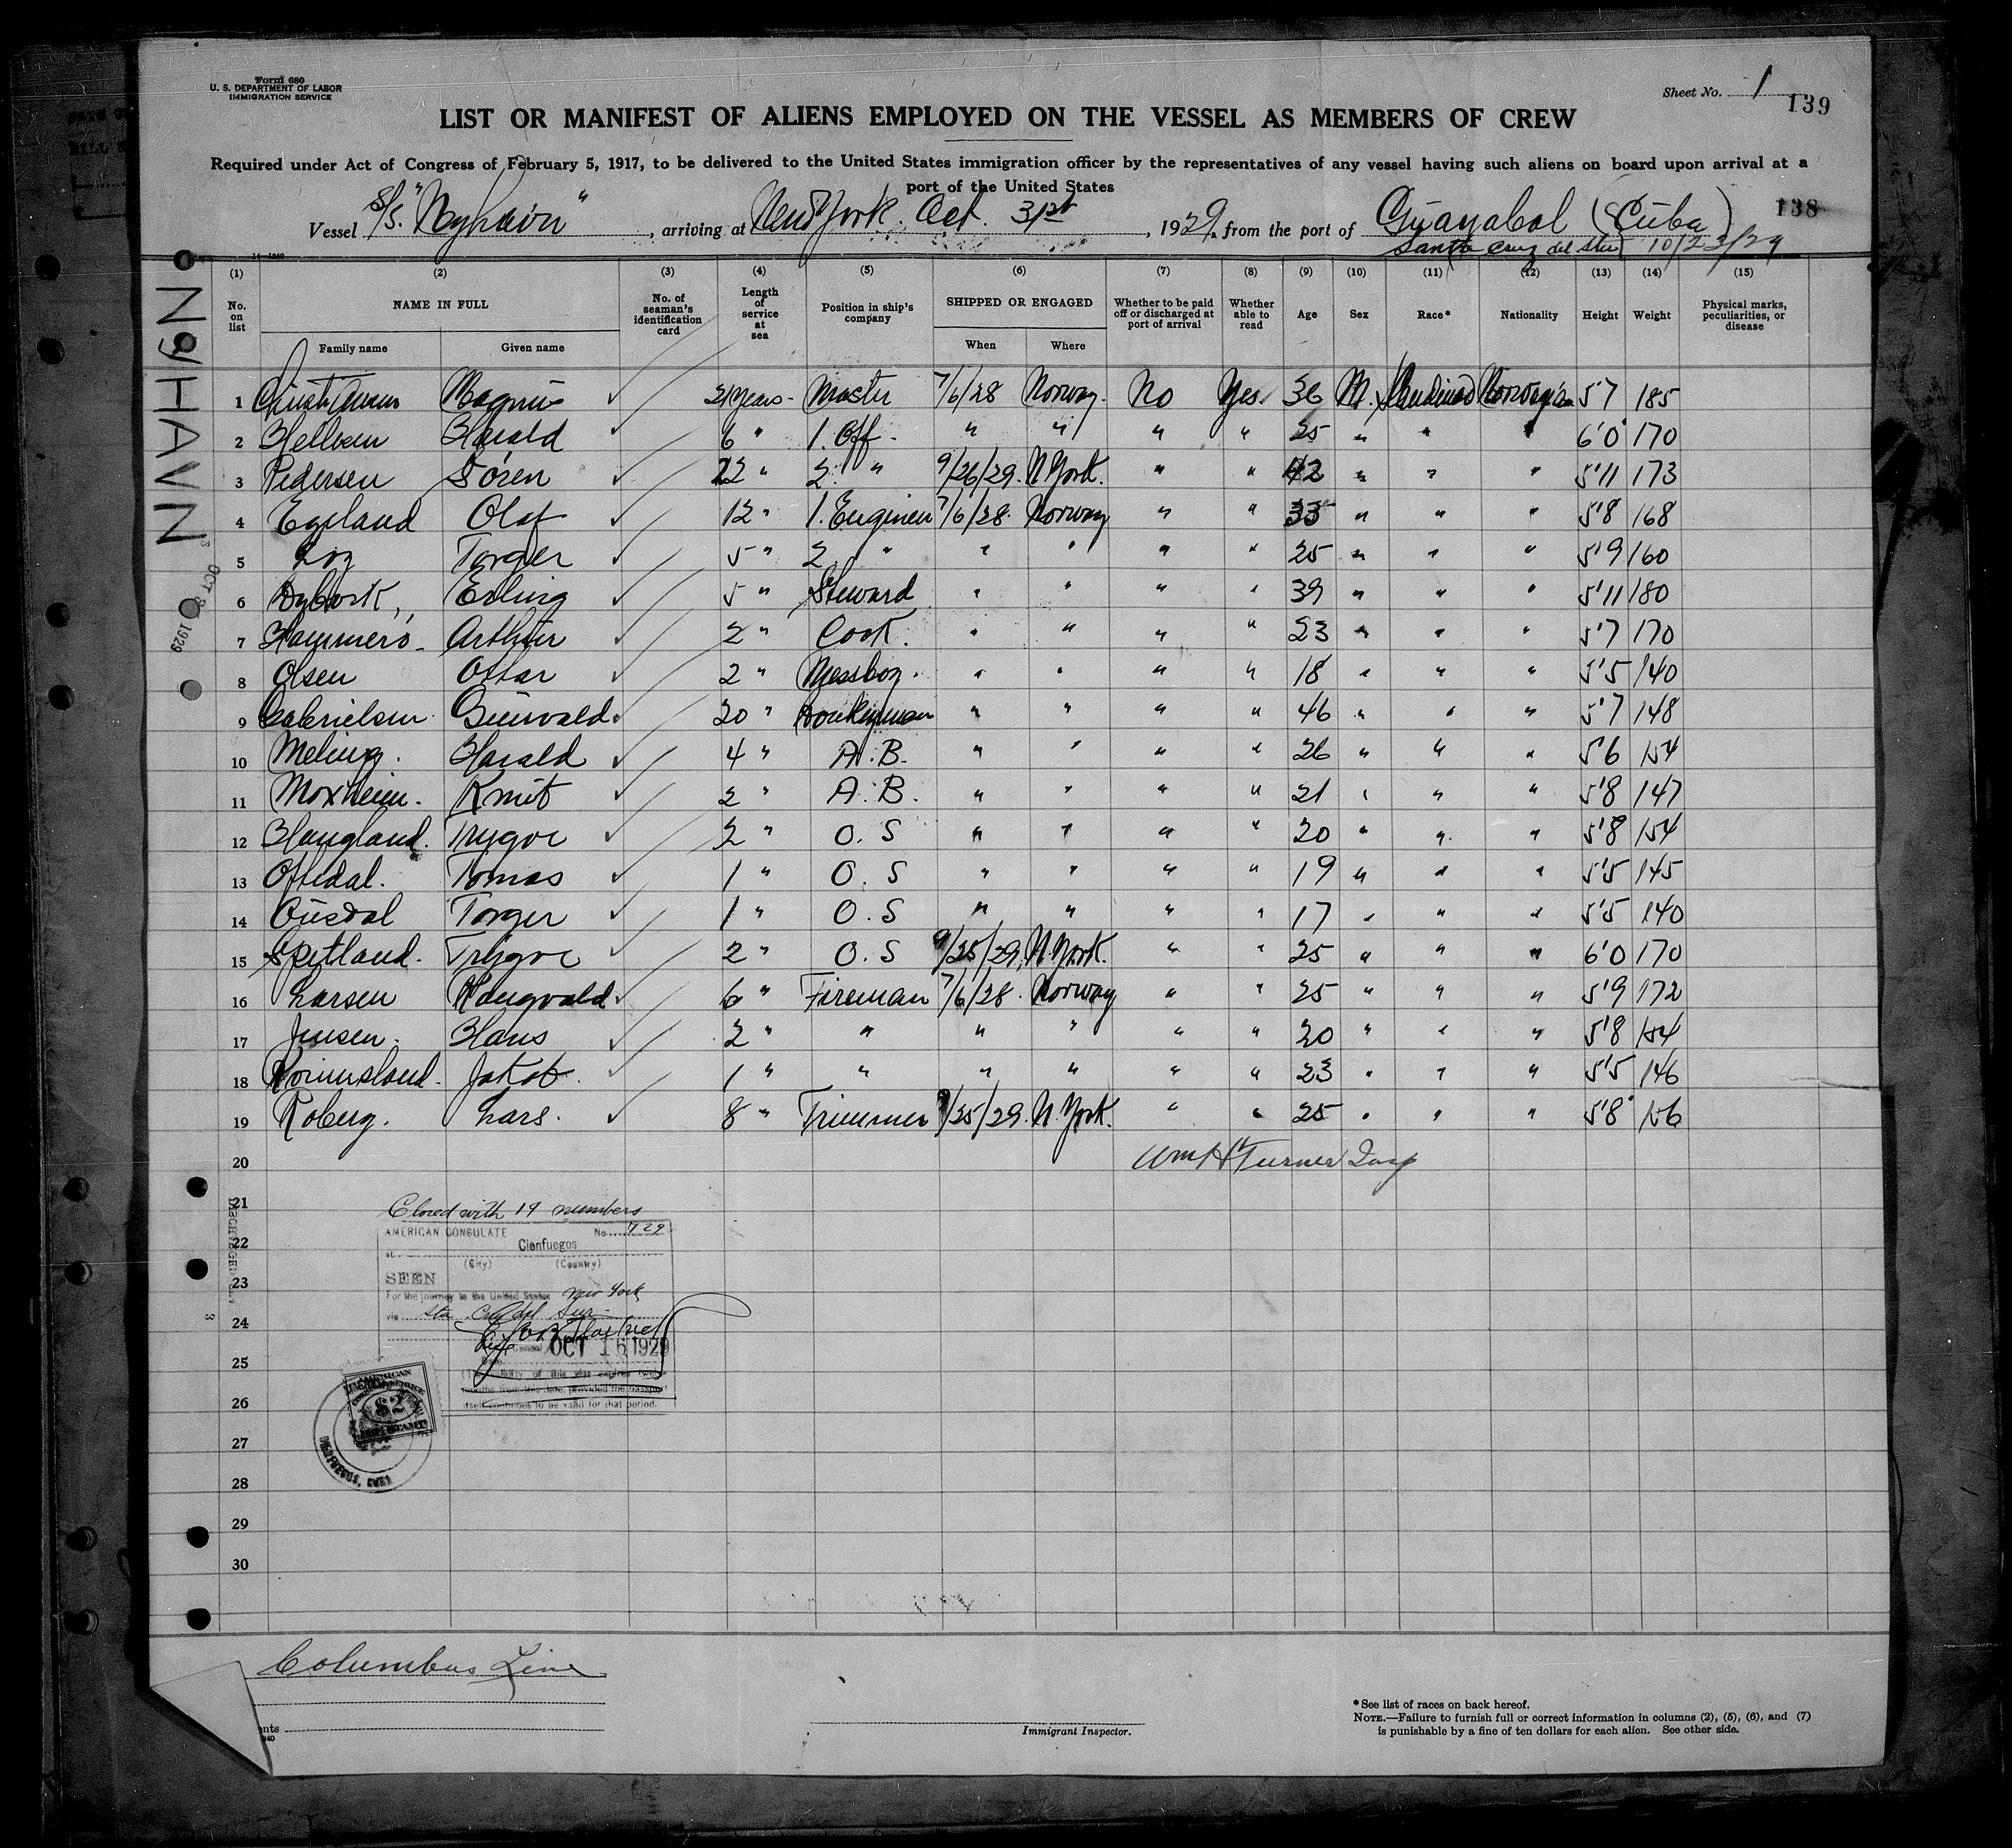 Form 680
U. S. DEPARTMENT OF LABOR
IMMIGRATION SERVICE
Sheet No. 1
139
LIST OR MANIFEST OF ALIENS EMPLOYED ON THE VESSEL AS MEMBERS OF CREW
Required under Act of Congress of February 5, 1917, to be delivered to the United States immigration officer by the representatives of any vessel having such aliens on board upon arrival at a
port of the United States
Vessel S/S. "Nyhavn", arriving at New York. Oct. 31st, 1929, from the port of Guayabal (Cuba)
138
Santa Cruz del Sur 10/23/29
NYHAVN
(1) (2) (3) (4) (5) (6) (7) (8) (9) (10) (11) (12) (13) (14) (15)
No. on list NAME IN FULL Family name Given name No. of seaman's identification card Length of service at sea Position in ship's company SHIPPED OR ENGAGED When Where Whether to be paid off or discharged at port of arrival Whether able to read Age Sex Race* Nationality Height Weight Physical marks, peculiarities, or disease
1 Magnus 21 years - Master 7/6/28 Norway. No Yes. 36 M. 5'7 185
2 Harald 6 " 1. Off - " " " " 25 " " " 6'0" 170
3 Pedersen Sören 22 " 2. " 9/26/29. N York. " " 42 " " " 5'11 173
4 Egeland Olaf 12 " 1. Engineer 7/6/28. Norway " " 33 " " " 5'8 168
5 Torger 5 " 2 " " " " " 25 " " " 5'9 160
6 Erling 5 " Steward " " " " 39 " " " 5'11 180
7 Hammerö - Arthur 2 " Cook. " " " " 23 " " " 5'7 170
8 Olsen Ottar 2 " Messboy. " " " " 18 " " " 5'5 140
9 Gabrielsen. 20 " Donkeyman " " " " 46 " " " 5'7 148
10 Meling. Harald 4 " A. B. " " " " 26 " " " 5'6 154
11 Moxheim. Knut 2 " A. B. " " " " 21 " " " 5'8 147
12 Haugland. Trygve 2 " O. S " " " " 20 " " " 5'8 154
13 Oftedal. Tomas 1 " O. S " " " " 19 " " " 5'5 145
14 Ousdal Torger 1 " O. S " " " " 17 " " " 5'5 140
15 Spitland. Trygve 2 " O. S 9/25/29. N. York. " " 25 " " " 6'0 170
16 Larsen Rangvald 6 " Fireman 7/6/28. Norway " " 25 " " " 5'9 172
17 Jensen. Hans 2 " " " " " " 20 " " " 5'8 154
18 Jakob. 1 " " " " " " 23 " " " 5'5 146
19 Roberg. Lars. 8 " Trimmer 9/25/29. N. York. " " 25 " " " 5'8" 156
20 Wm H Turner Insp
21
Closed with 19 numbers
AMERICAN CONSULATE No. 729
22
at Cienfuegos
(City) (Country)
23
SEEN
For the journey to the United States New York
via Sta. Cruz del Sur
24
OCT 16 1929
25
(The validity of this visa expires twelve
months from this date, provided the passport
itself continues to be valid for that period.
AMERICAN
$2
FEE STAMP
CIENFUEGOS, CUBA
26
27
28
29
30
OCT 1929
Columbus Line
nts
Immigrant Inspector.
* See list of races on back hereof.
NOTE.—Failure to furnish full or correct information in columns (2), (5), (6), and (7)
is punishable by a fine of ten dollars for each alien. See other side.